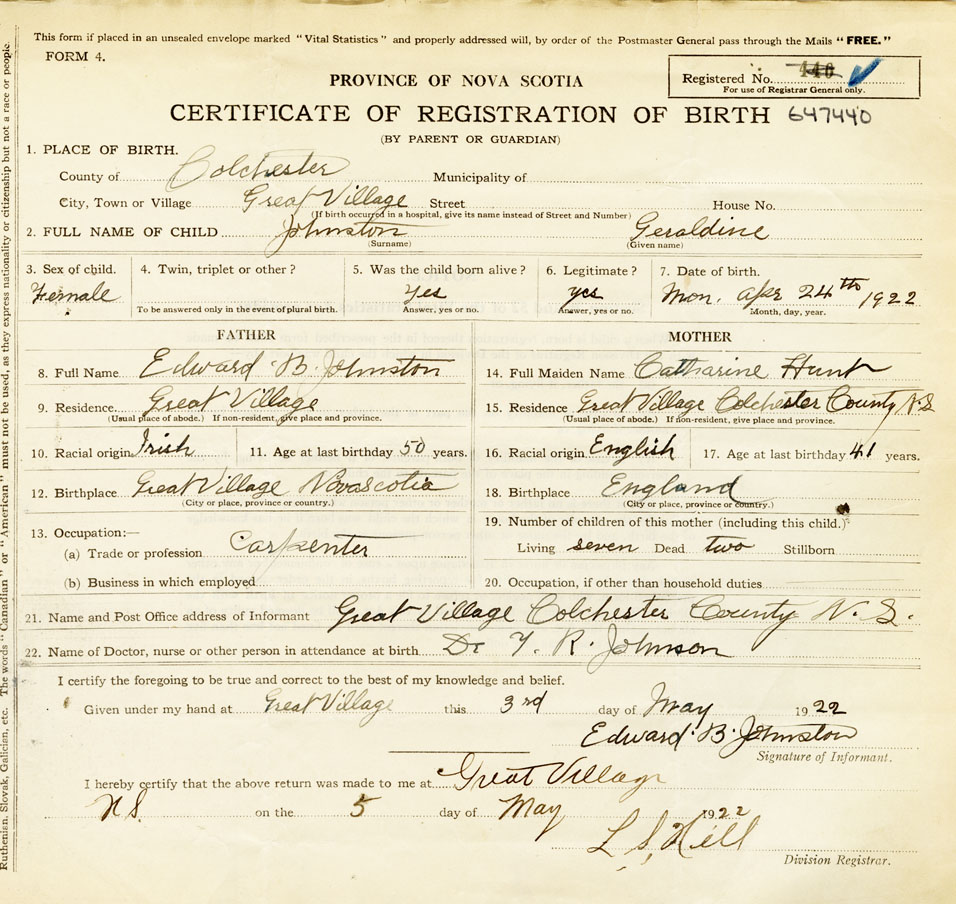 This form if placed in an unsealed envelope marked "Vital Statistics" and properly addressed will, by order of the Postmaster General pass through the Mails "FREE."
FORM 4.
PROVINCE OF NOVA SCOTIA
Registered No. 440
For use of Registrar General only.
CERTIFICATE OF REGISTRATION OF BIRTH 647440
(BY PARENT OR GUARDIAN)
1. PLACE OF BIRTH.
County of Colchester Municipality of
City, Town or Village Great Village Street House No.
(If birth occurred in a hospital, give its name instead of Street and Number)
2. FULL NAME OF CHILD Johnston Geraldine
(Surname) (Given name)
3. Sex of child. 4. Twin, triplet or other? 5. Was the child born alive? 6. Legitimate? 7. Date of birth.
Female Yes yes Mon. Apr 24th 1922
To be answered only in the event of plural birth. Answer, yes or no. Answer, yes or no. Month, day, year.
FATHER MOTHER
8. Full Name Edward B. Johnston 14. Full Maiden Name Catharine Hunt
9. Residence Great Village 15. Residence Great Village Colchester County N.S
(Usual place of abode.) If non-resident, give place and province. (Usual place of abode.) If non-resident, give place and province.
10. Racial origin Irish 11. Age at last birthday 50 years. 16. Racial origin English 17. Age at last birthday 41 years.
12. Birthplace Great Village Novascotia 18. Birthplace England
(City or place, province or country.) (City or place, province or country.)
13. Occupation:— 19. Number of children of this mother (including this child.)
(a) Trade or profession Carpenter Living seven Dead two Stillborn
(b) Business in which employed 20. Occupation, if other than household duties
21. Name and Post Office address of Informant Great Village Colchester County N. S.
22. Name of Doctor, nurse or other person in attendance at birth Dr T. R. Johnson
I certify the foregoing to be true and correct to the best of my knowledge and belief.
Given under my hand at Great Village this 3rd day of May 1922
Edward B. Johnston
Signature of Informant.
I hereby certify that the above return was made to me at Great Village
N.S. on the 5 day of May 1922
L S Hill
Division Registrar.
Ruthenian, Slovak, Galician, etc. The words "Canadian" or "American" must not be used, as they express nationality or citizenship but not a race or people.